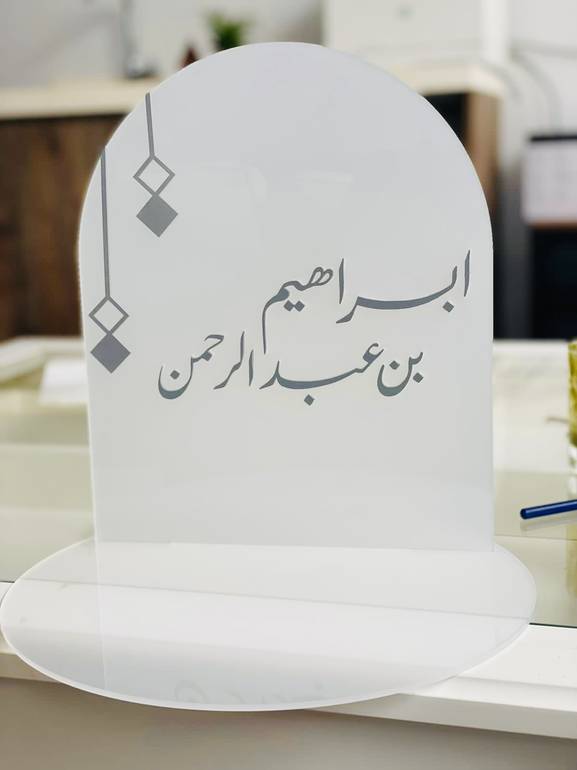 ابراهيم
بن عبدالرحمن